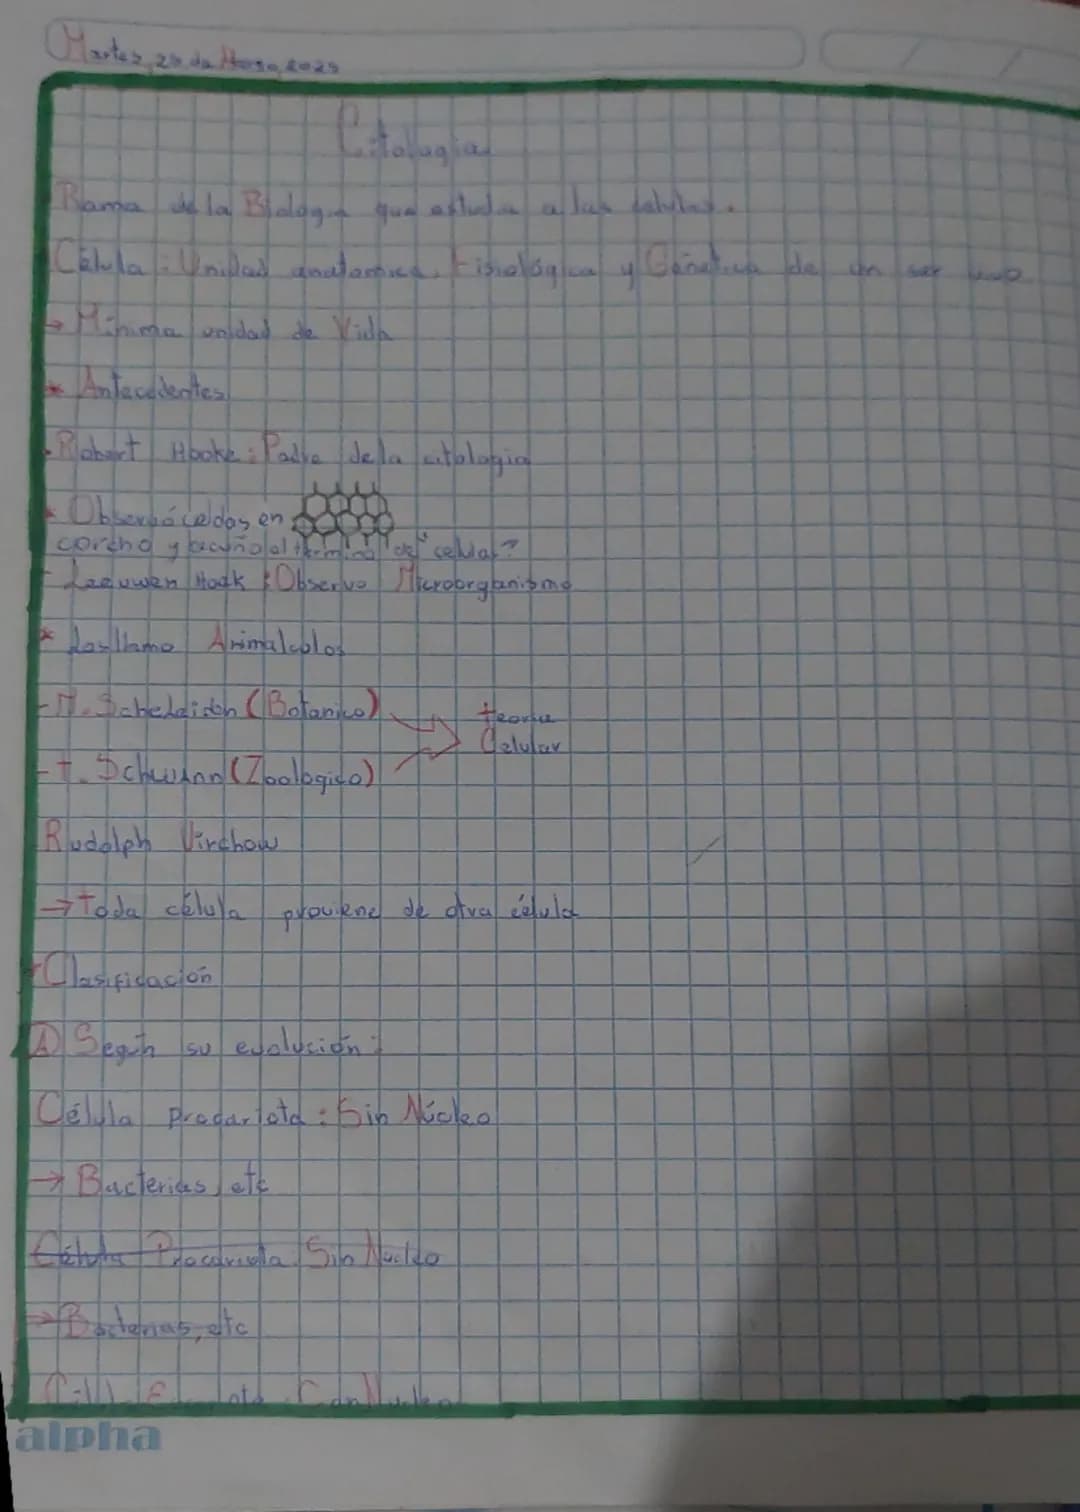 Martes, 25 de 2025
Citologia
Rama de la Biologia que estudia a las celulas.
Célula: Unidad anatomica, Fisiológica y Genética de un ser vivo
→ Minima unidad de Vida
* Antecedentes
- Robert Hooke: Padre de la citologia
* Observó celdas en
corcho y acuño el termino de "celula"
- Leeuwen Hoek: Observo Microorganismo
* Los llamo Animalculos
- M. Scheleidon (Botanico)
teoria
Celular
- t. Schwann (Zoologico)
Rudolph Virchow
→ Toda célula proviene de otra célula
- Clasificación
A) Según su evolución:
Célula procariota: Sin Núcleo
→ Bacterias, etc
Célula Procariota Sin Nucleo
→ Bacterias, etc
Con Nucleo
alpha